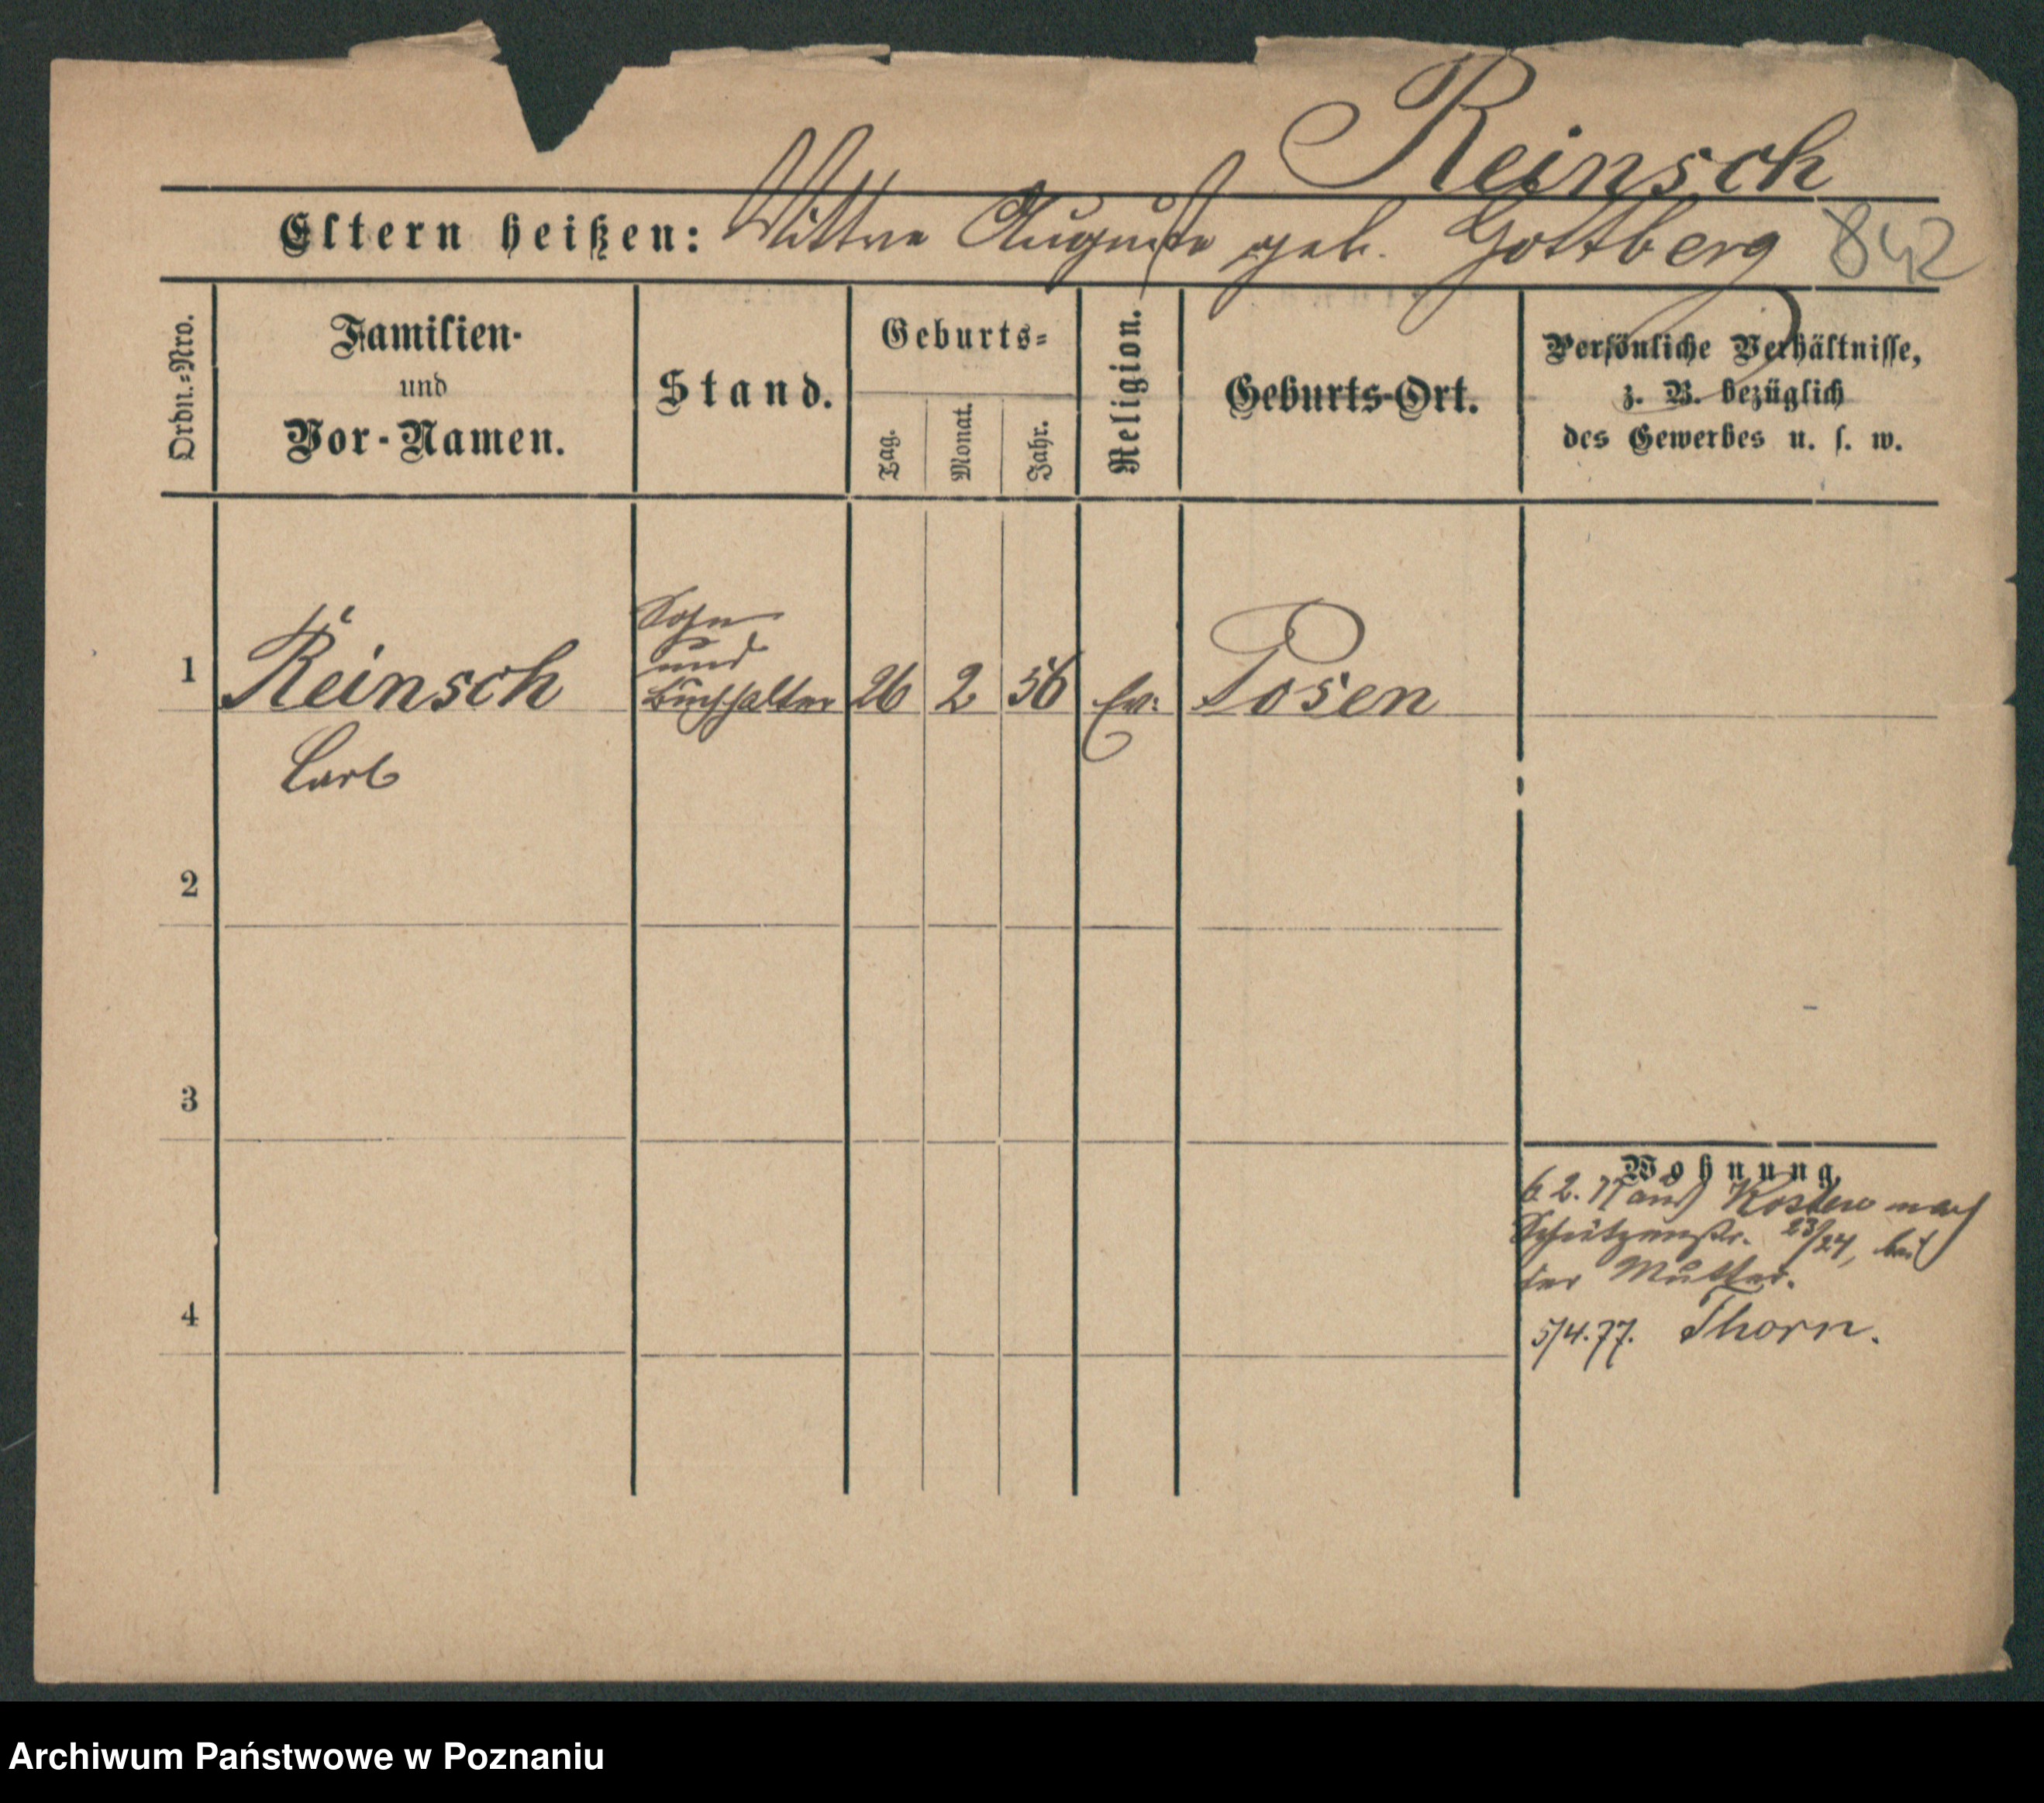 Reinsch
Eltern heißen: Wittwe Auguste geb. Gottberg 842
Ordn.=Nro.
Familien-
und
Vor-Namen.
Stand.
Geburts=
Tag.
Monat.
Jahr.
Religion.
Geburts-Ort.
Persönliche Verhältnisse,
z. B. bezüglich
des Gewerbes u. s. w.
1
Reinsch
Carl
Sohn
und
Buchhalter
26
2
56
Ev:
Posen
2
3
4
Wohnung
6. 2. 77 aus Kosten nach
Schützenstr. 23/24, bei
der Mutter.
5/4. 77. Thorn.
Archiwum Państwowe w Poznaniu